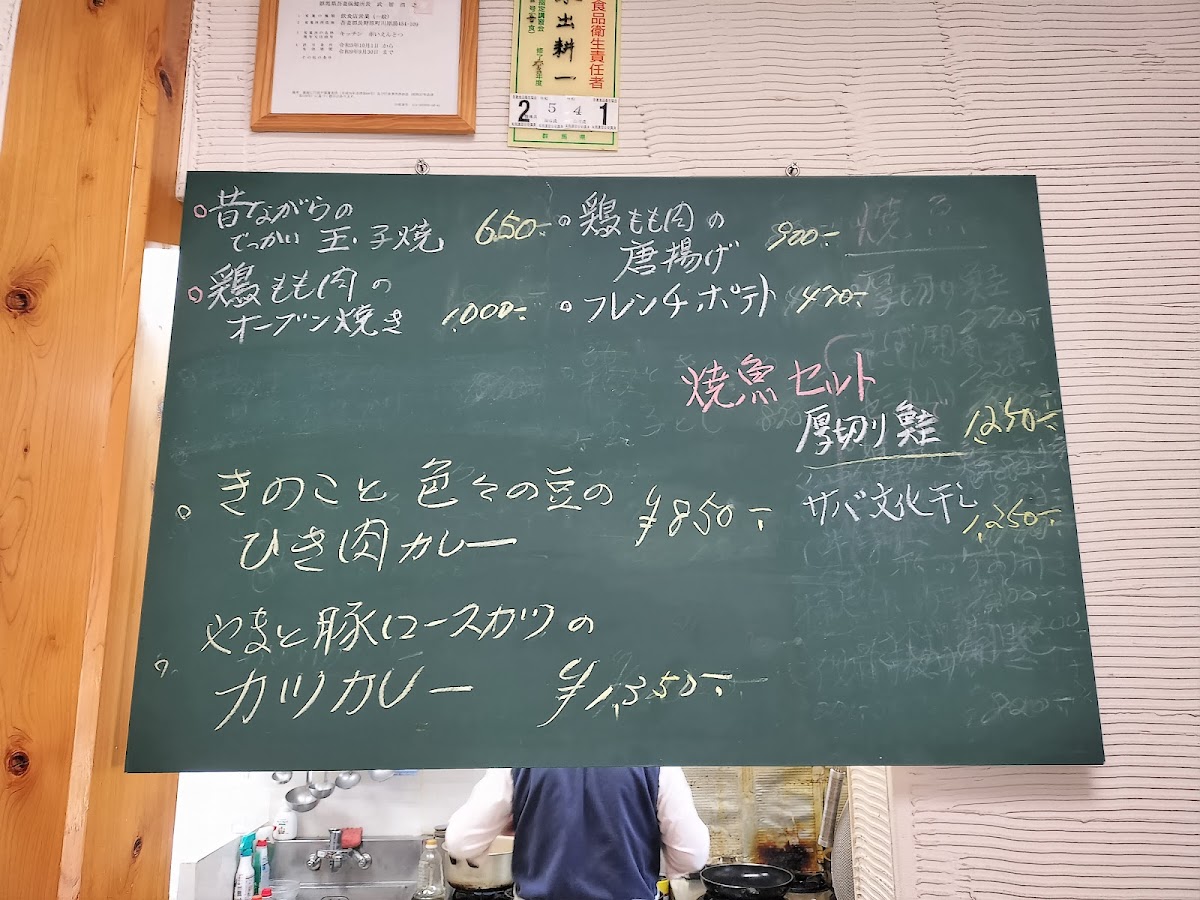 食品衛生責任者
家出耕一
2 5 4 1
群馬県
飲食店営業(一般)
昔ながらの
でっかい 玉子焼 650-
鶏もも肉の
オーブン焼き 1,000-
鶏もも肉の
唐揚げ 900-
フレンチポテト 470-
焼魚セット
厚切り鮭 1,250-
サバ文化干し 1,250-
きのこと 色々の豆の
ひき肉カレー ¥850-
やまと豚ロースカツの
カツカレー ¥1,350-
焼魚